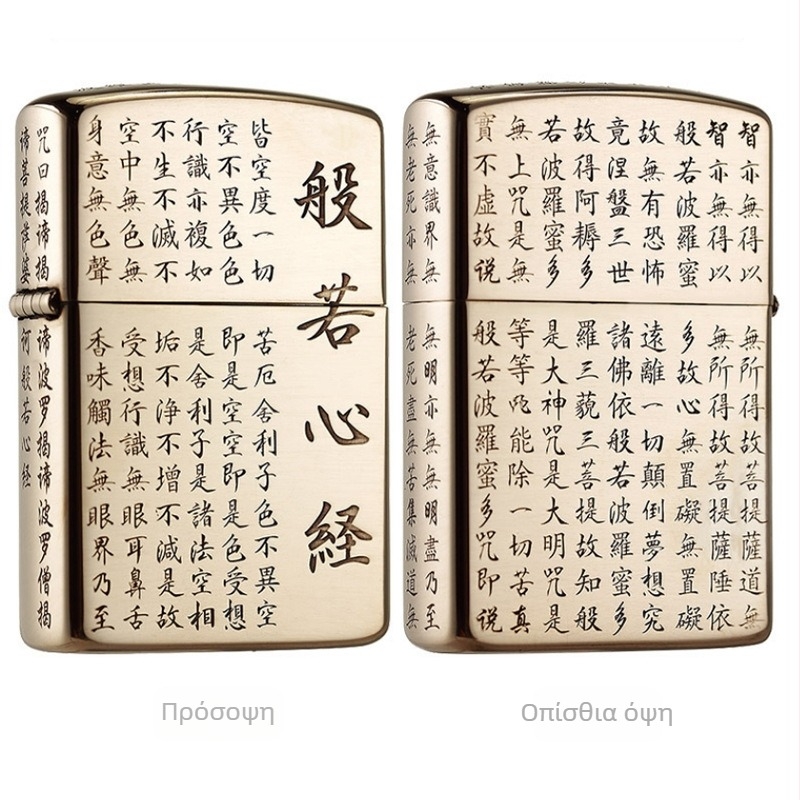 般若心経
皆空度一切苦厄舍利子色不異空
空不異色色即是空空即是色受想
行識亦複如是舍利子是諸法空相
不生不滅不垢不浄不增不減是故
空中無色無受想行識無眼耳鼻舌
身意無色聲香味觸法無眼界乃至
咒曰揭諦揭諦波罗揭諦波罗僧揭
諦菩提薩婆诃般若心経
智亦無得以無所得故菩提薩道無
智亦無得以無所得故菩提薩埵依
般若波羅蜜多故心無置礙無置礙
故無有恐怖遠離一切顛倒夢想究
竟涅盤三世諸佛依般若波羅蜜多
故得阿耨多羅三藐三菩提故知般
若波羅蜜多是大神咒是大明咒是
無上咒是無等等咒能除一切苦真
實不虛故说般若波羅蜜多咒即说
無意識界無無明亦無無明盡乃至
無老死亦無老死盡無苦集滅道無
Πρόσοψη
Οπίσθια όψη